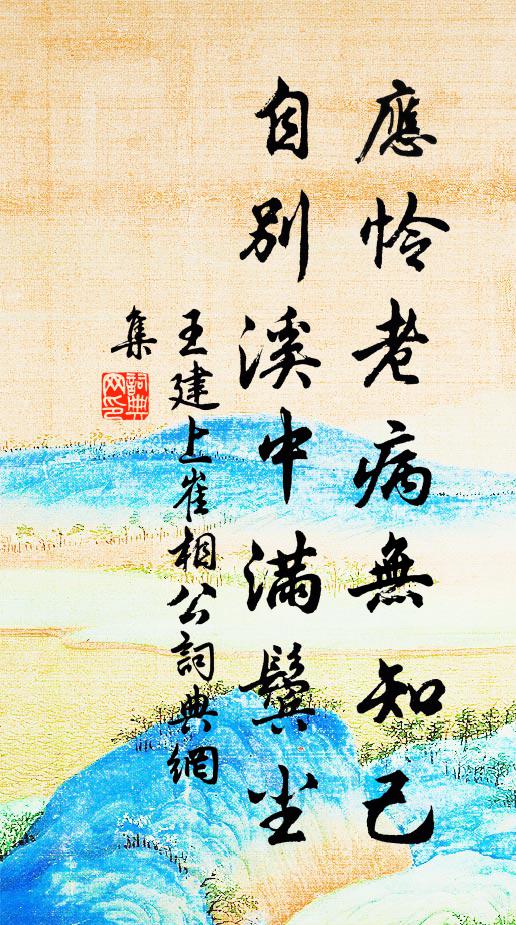 應怜老病無知己
自別溪中滿鬓尘
王建上崔相公詞典網
集
詞典網印